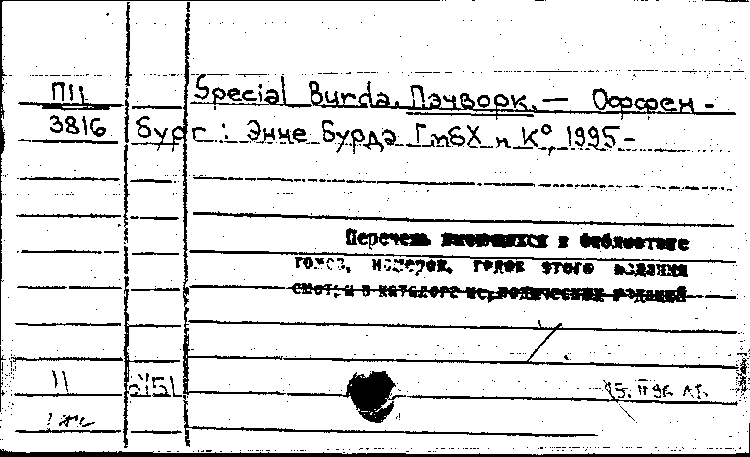 П11 Special Burda. Пэчворк. — Оффен-
3816 бург : Энне Бурда ГмбХ и К°, 1995-
Перечень имеющихся в библиотеке
томов, номеров, годов этого издания
смотри в каталоге периодических изданий
11 15. II 96.